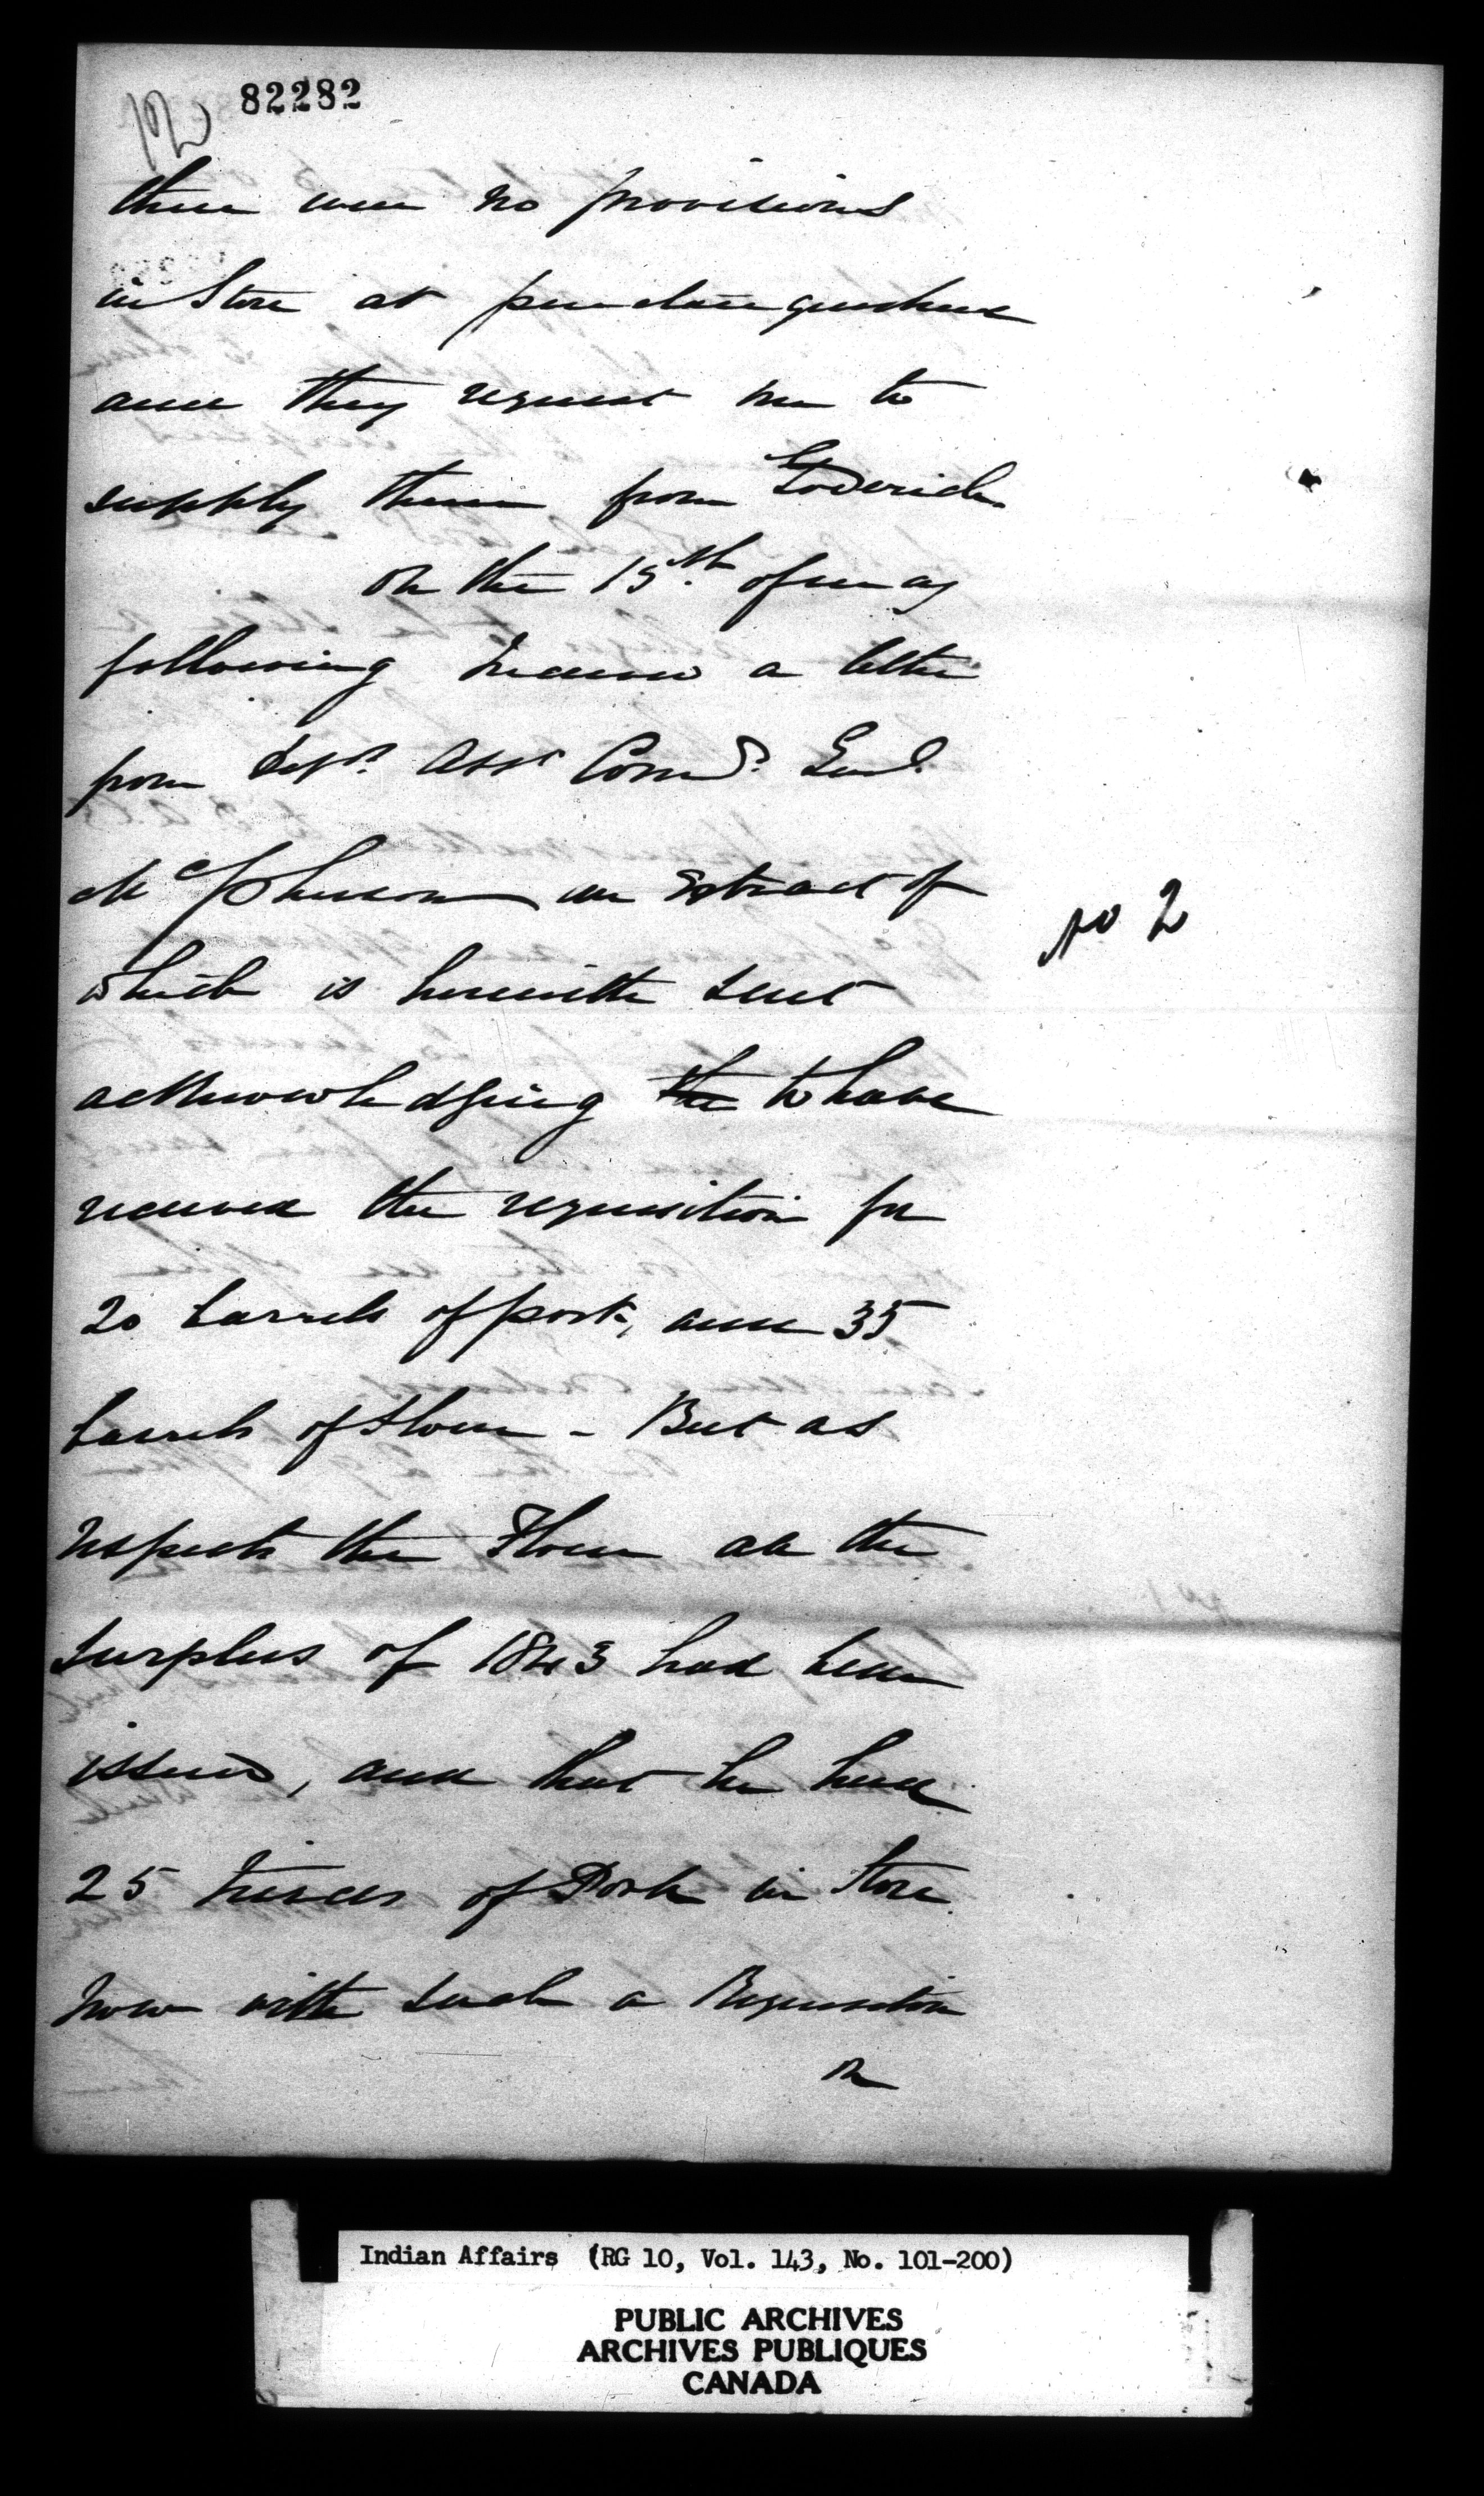 82282
there were no provisions
in Store at penetanguishene
and they request me to
supply them from Goderich
on the 15th of may
following I received a letter
from Depy. Asst Comy. Genl.
McPherson an Extract of
which is herewith sent
No 2
acknowledging the to have
received the requisition for
20 barrels of pork, and 35
barrels of flour - But as
respects the Flour all the
surplus of 1843 had been
issued, and that he had
25 tierces of Pork in Store
now with such a Requisition
Indian Affairs (RG 10, Vol. 143, No. 101-200)
PUBLIC ARCHIVES
ARCHIVES PUBLIQUES
CANADA